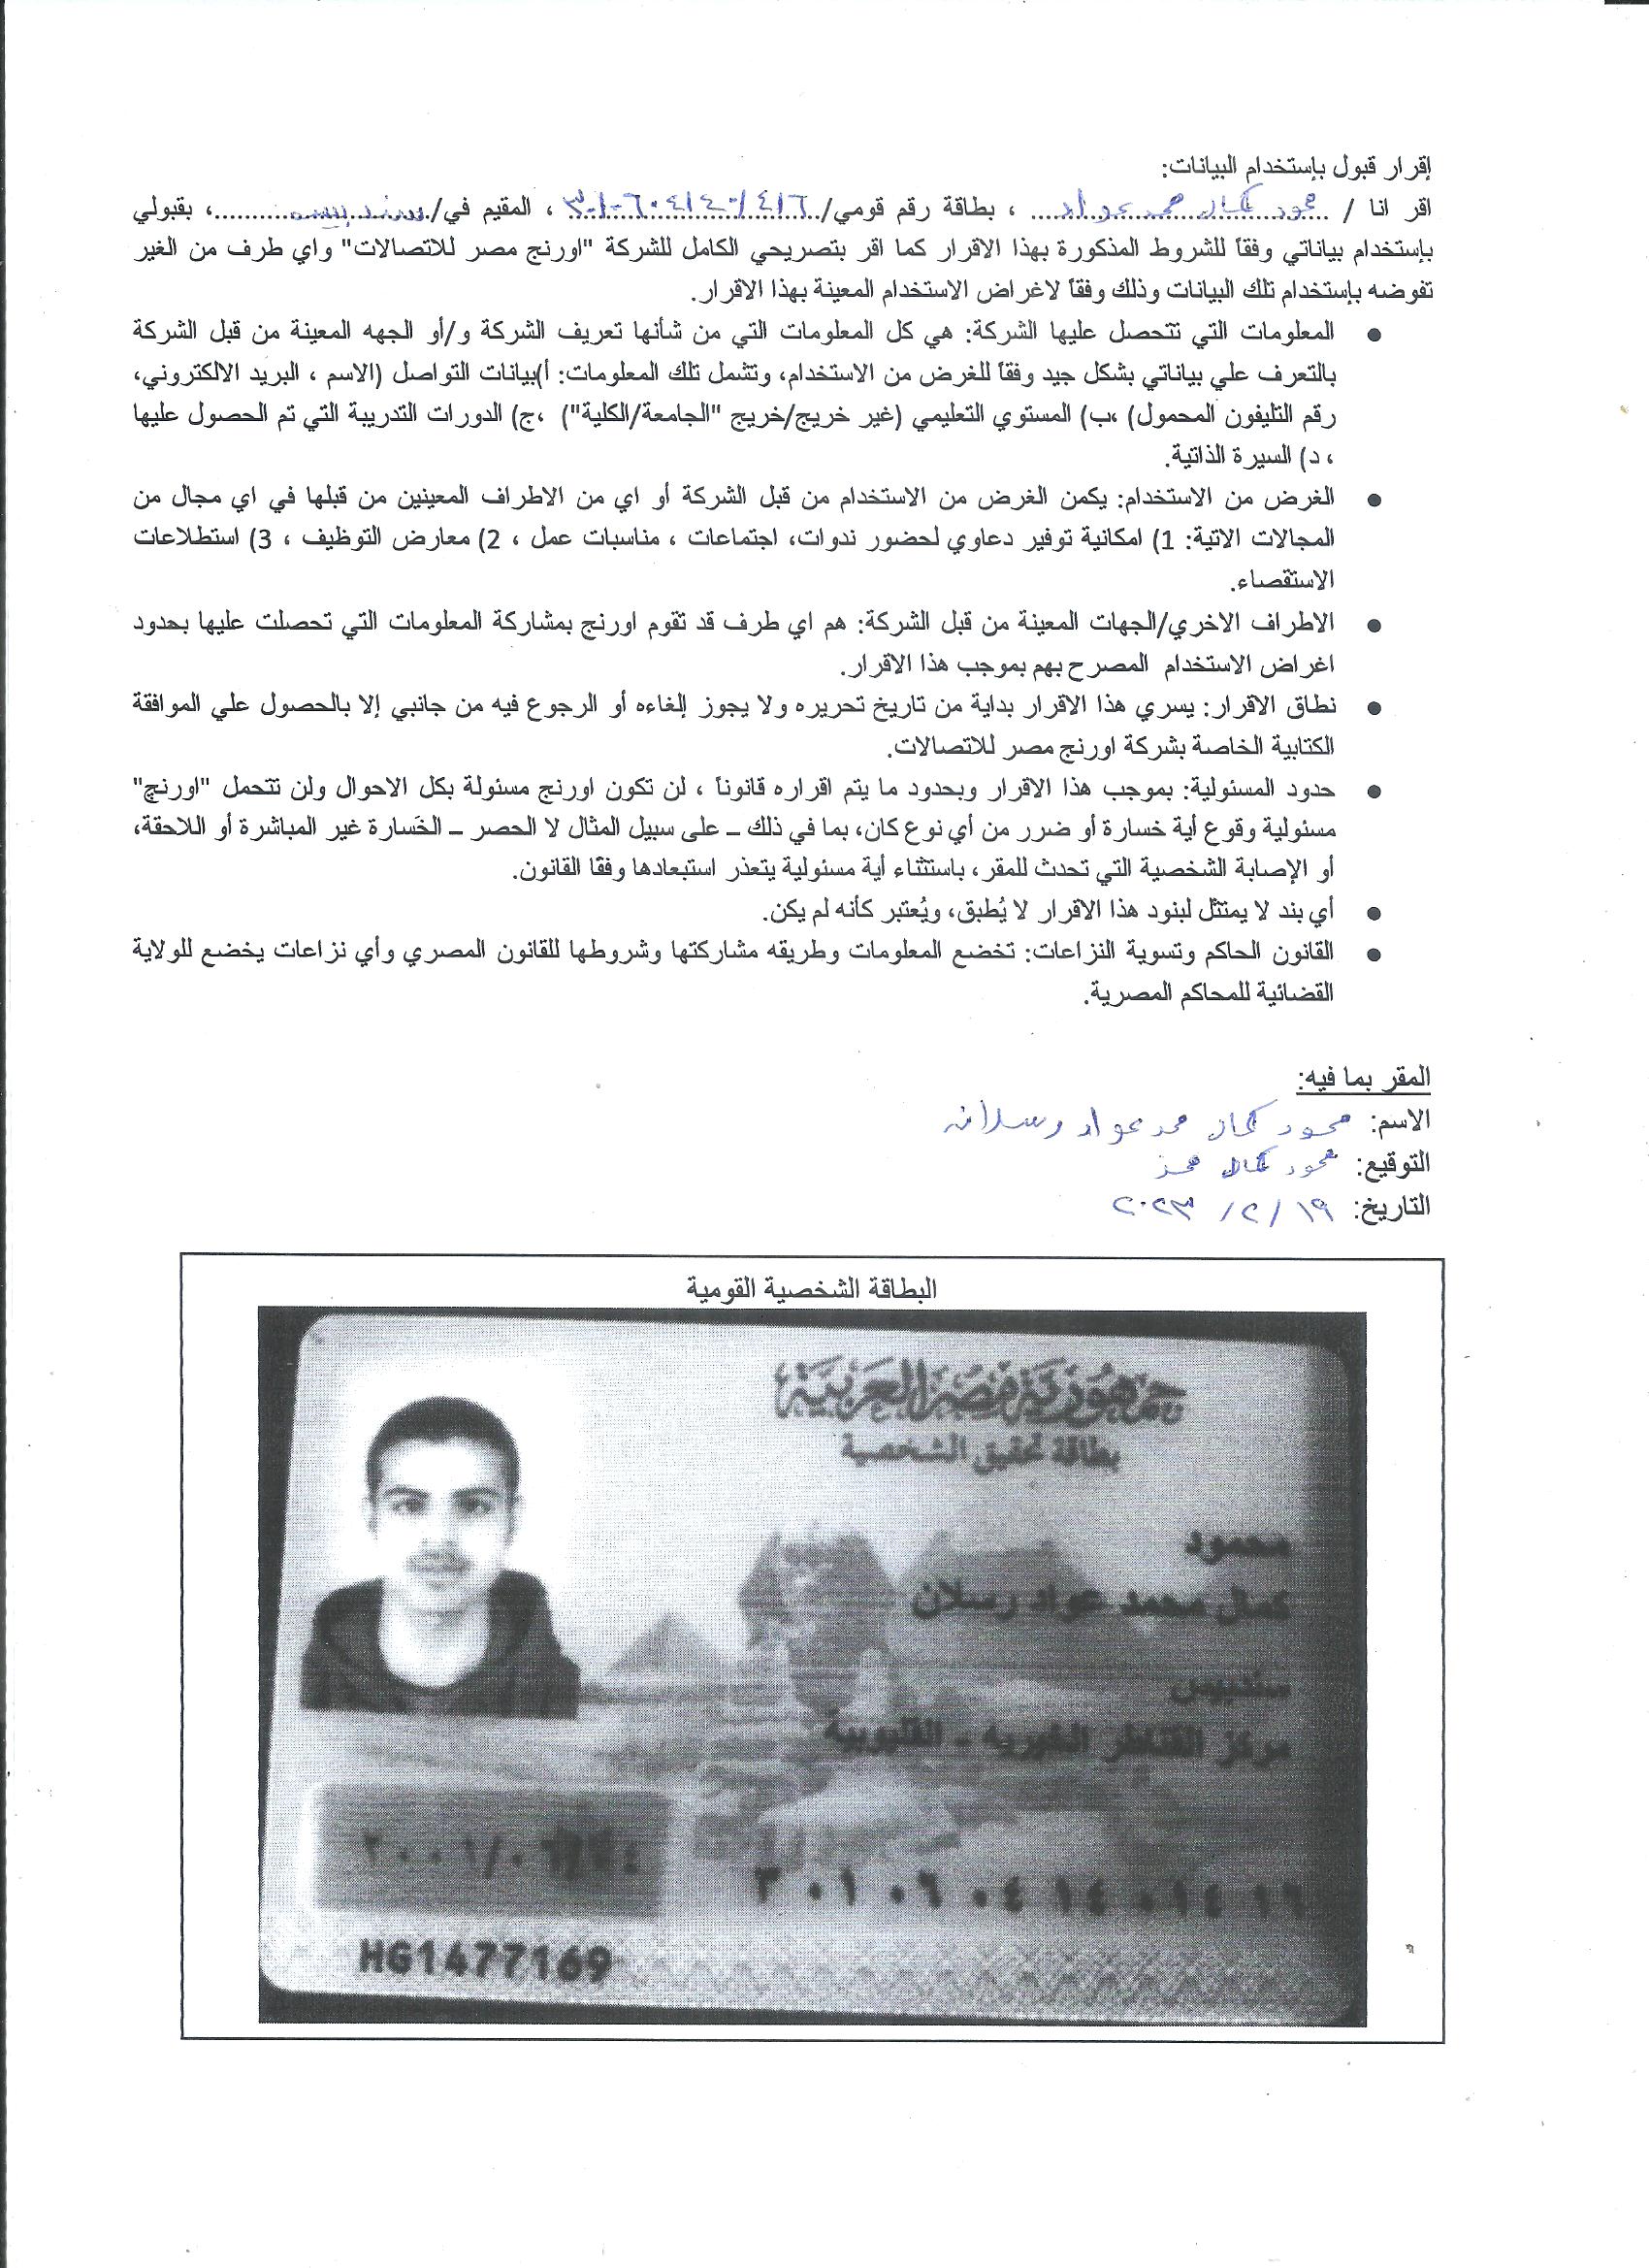 إقرار قبول بإستخدام البيانات:
اقر انا / محمود كمال محمد عواد ، بطاقة رقم قومي/ ٣٠١٠٦٠٤١٤٠١٤١٦ ، المقيم في/ سنديس ، بقبولي
بإستخدام بياناتي وفقاً للشروط المذكورة بهذا الاقرار كما اقر بتصريحي الكامل للشركة "اورنج مصر للاتصالات" واي طرف من الغير
تفوضه بإستخدام تلك البيانات وذلك وفقاً لاغراض الاستخدام المعينة بهذا الاقرار.
● المعلومات التي تتحصل عليها الشركة: هي كل المعلومات التي من شأنها تعريف الشركة و/أو الجهه المعينة من قبل الشركة
بالتعرف علي بياناتي بشكل جيد وفقاً للغرض من الاستخدام، وتشمل تلك المعلومات: أ)بيانات التواصل (الاسم ، البريد الالكتروني،
رقم التليفون المحمول) ،ب) المستوي التعليمي (غير خريج/خريج "الجامعة/الكلية") ،ج) الدورات التدريبة التي تم الحصول عليها
، د) السيرة الذاتية.
● الغرض من الاستخدام: يكمن الغرض من الاستخدام من قبل الشركة أو اي من الاطراف المعينين من قبلها في اي مجال من
المجالات الاتية: 1) امكانية توفير دعاوي لحضور ندوات، اجتماعات ، مناسبات عمل ، 2) معارض التوظيف ، 3) استطلاعات
الاستقصاء.
● الاطراف الاخري/الجهات المعينة من قبل الشركة: هم اي طرف قد تقوم اورنج بمشاركة المعلومات التي تحصلت عليها بحدود
اغراض الاستخدام المصرح بهم بموجب هذا الاقرار.
● نطاق الاقرار: يسري هذا الاقرار بداية من تاريخ تحريره ولا يجوز إلغاءه أو الرجوع فيه من جانبي إلا بالحصول علي الموافقة
الكتابية الخاصة بشركة اورنج مصر للاتصالات.
● حدود المسئولية: بموجب هذا الاقرار وبحدود ما يتم اقراره قانوناً ، لن تكون اورنج مسئولة بكل الاحوال ولن تتحمل "اورنچ"
مسئولية وقوع أية خسارة أو ضرر من أي نوع كان، بما في ذلك – على سبيل المثال لا الحصر – الخَسارة غير المباشرة أو اللاحقة،
أو الإصابة الشخصية التي تحدث للمقر، باستثناء أية مسئولية يتعذر استبعادها وفقًا القانون.
● أي بند لا يمتثل لبنود هذا الاقرار لا يُطبق، ويُعتبر كأنه لم يكن.
● القانون الحاكم وتسوية النزاعات: تخضع المعلومات وطريقه مشاركتها وشروطها للقانون المصري وأي نزاعات يخضع للولاية
القضائية للمحاكم المصرية.
المقر بما فيه:
الاسم: محمود كمال محمد عواد رسلان
التوقيع: محمود كمال محمد
التاريخ: ١٩ / ٢ / ٢٠٢٣
البطاقة الشخصية القومية
جمهورية مصر العربية
بطاقة تحقيق الشخصية
محمود
كمال محمد عواد رسلان
سنديس
مركز القناطر الخيريه - القليوبية
٢٠٠١/٠٦/٠٤
٣٠١٠٦٠٤١٤٠١٤١٦
HG1477169